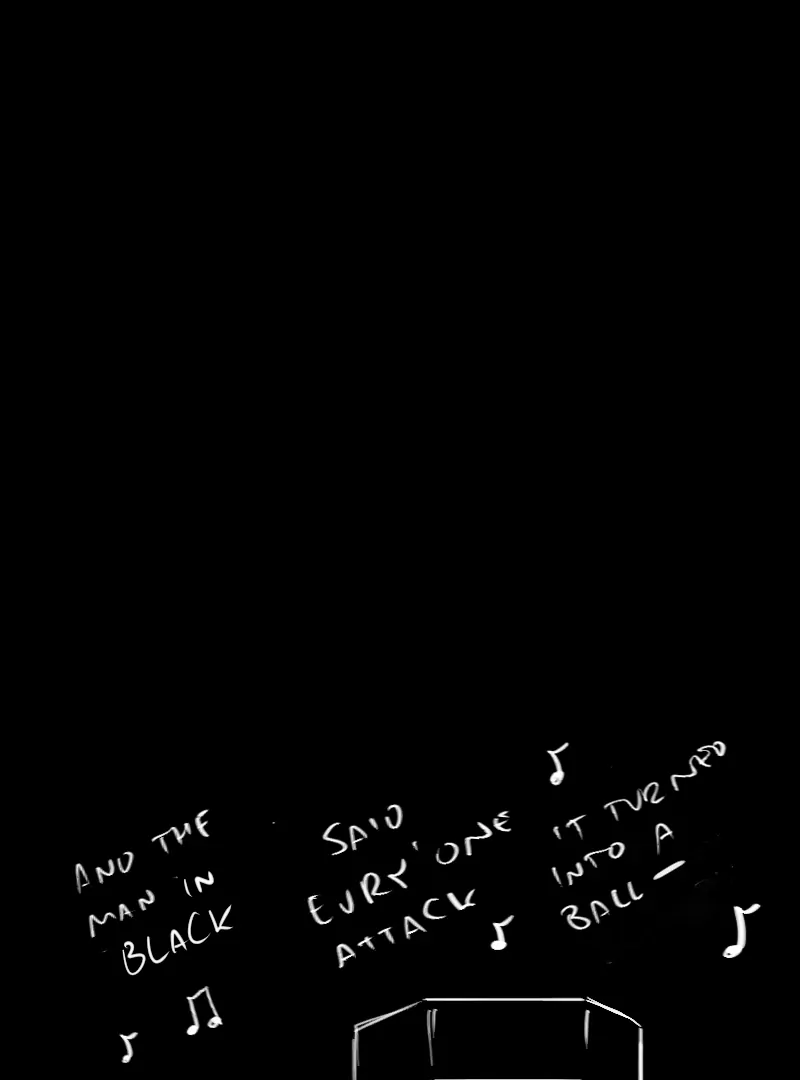 AND THE
MAN IN
BLACK
SAID
EVRY'ONE
ATTACK
IT TURNED
INTO A
BALL—